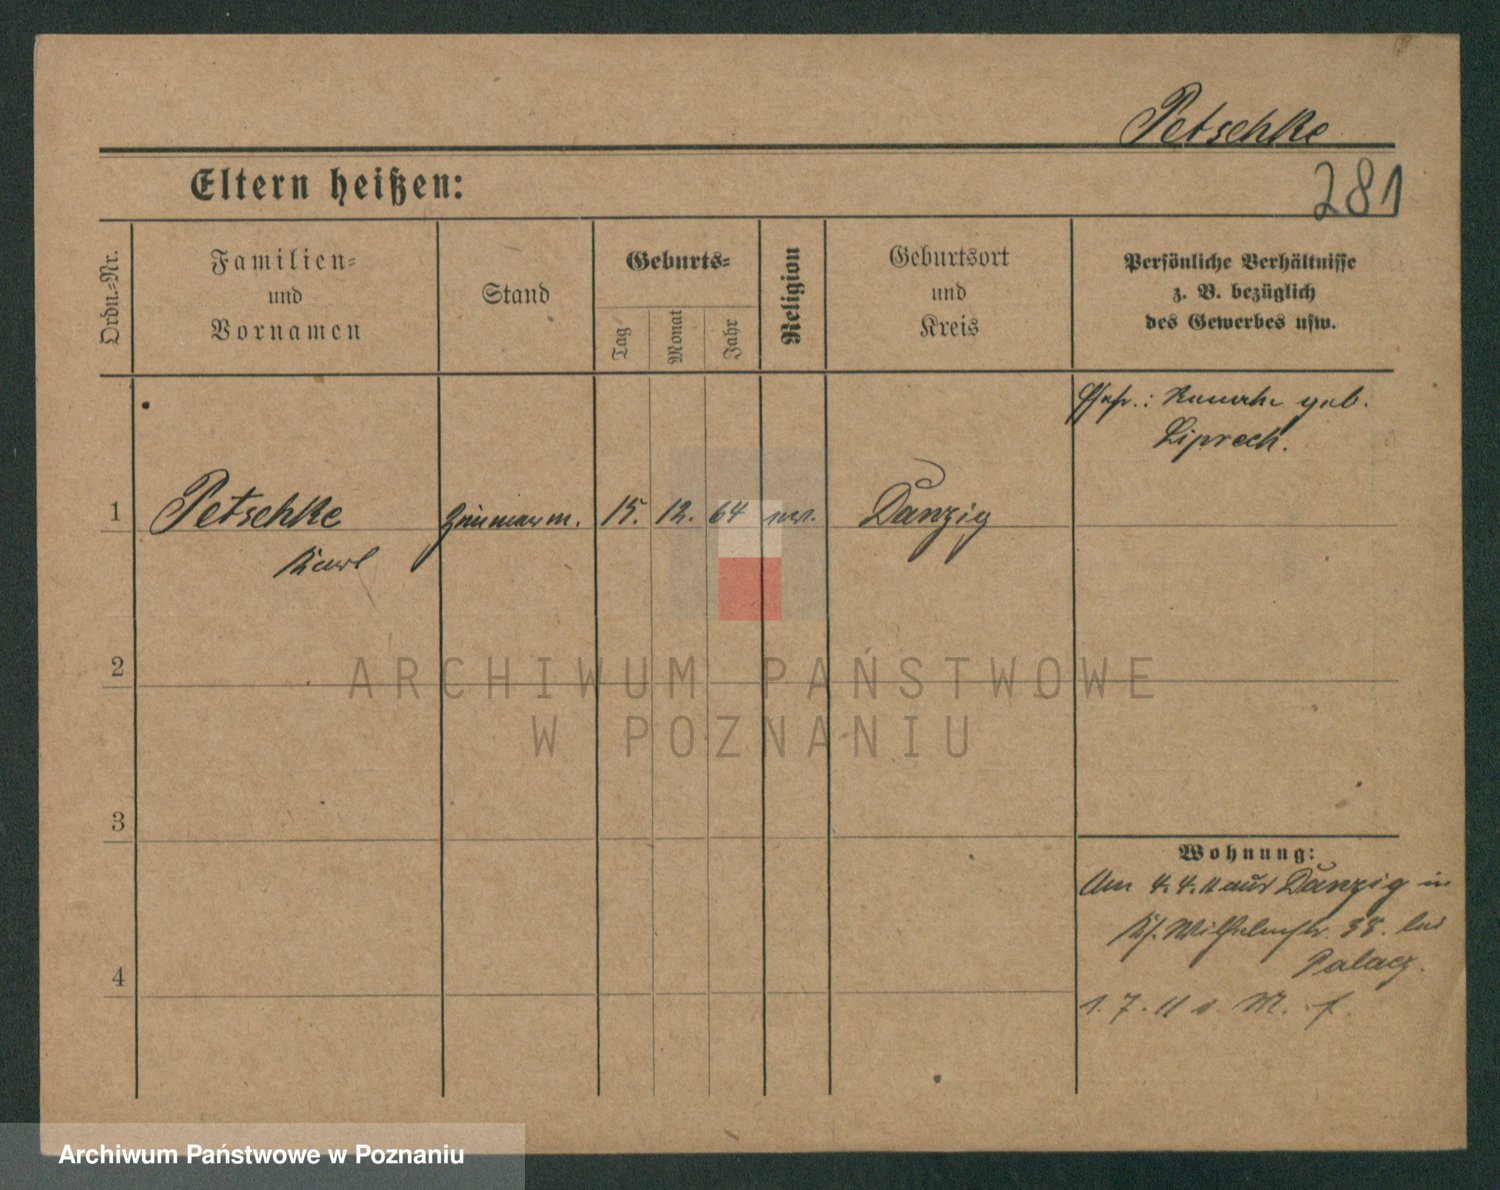 Petschke
281
Eltern heißen:
Ordn.-Nr.
Familien-
und
Vornamen
Stand
Geburts-
Tag
Monat
Jahr
Religion
Geburtsort
und
Kreis
Persönliche Verhältnisse
z. B. bezüglich
des Gewerbes usw.
geb.
Liprech.
1 Petschke Zimmerm. 15. 12. 64 Danzig
Karl
2
3
4
Wohnung:
Am 4.4.11 aus Danzig in
Wilhelmstr. 38. bei
Palacz.
1.7.11
ARCHIWUM PAŃSTWOWE
W POZNANIU
Archiwum Państwowe w Poznaniu